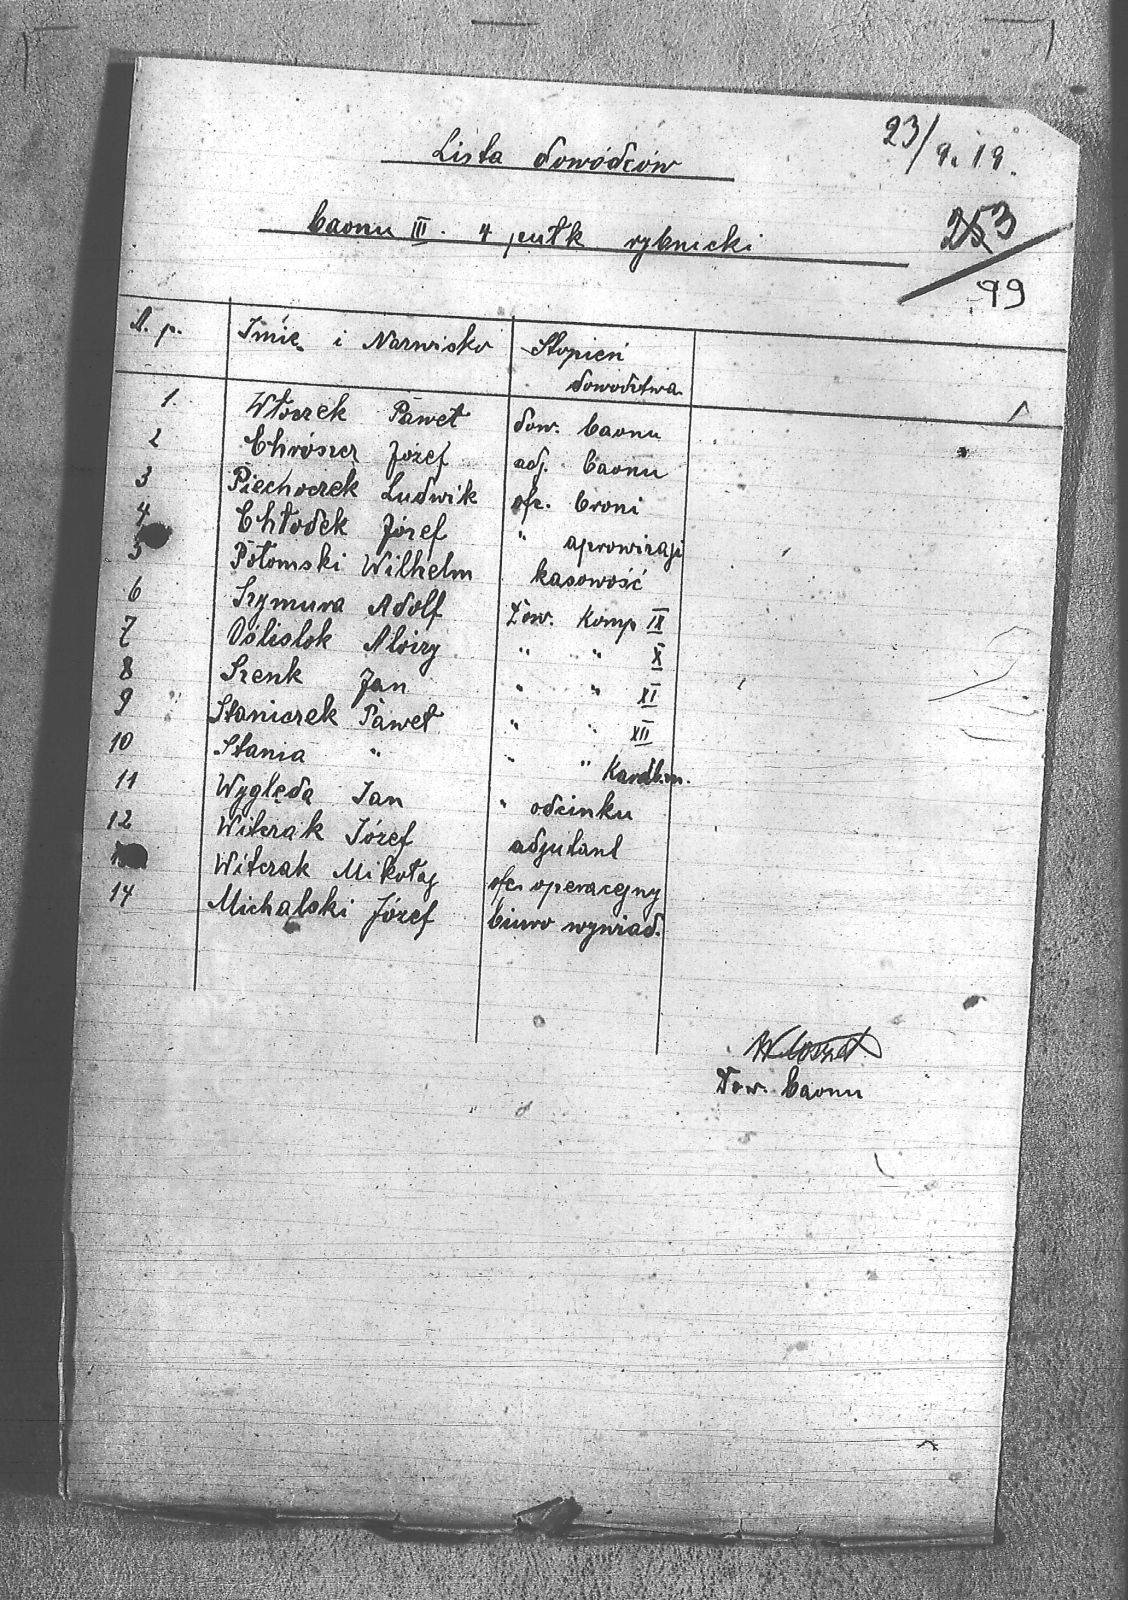 23/9.19.
Lista dowódców
baonu III. 4 pułk rybnicki
253
99
L. p. Imię i Nazwisko Stopień dowództwa
1. Włoczek Paweł dow. baonu
2 Chrószcz Józef adj. baonu
3 Piechoczek Ludwik ofc. broni
4 Chłodek Józef " aprowizacji
5 Potomski Wilhelm kasowość
6 Szymura Adolf Dow. Komp IX
7 Oślislok Alojzy " " X
8 Szenk Jan " " XI
9 Staniczek Paweł " " XII
10 Stania " " " Karab.m.
11 Wyględa Jan " odcinku
12 Witczak Józef adjutant
Witczak Mikołaj ofc. operacyjny
14 Michalski Józef biuro wywiad.
Dow. baonu